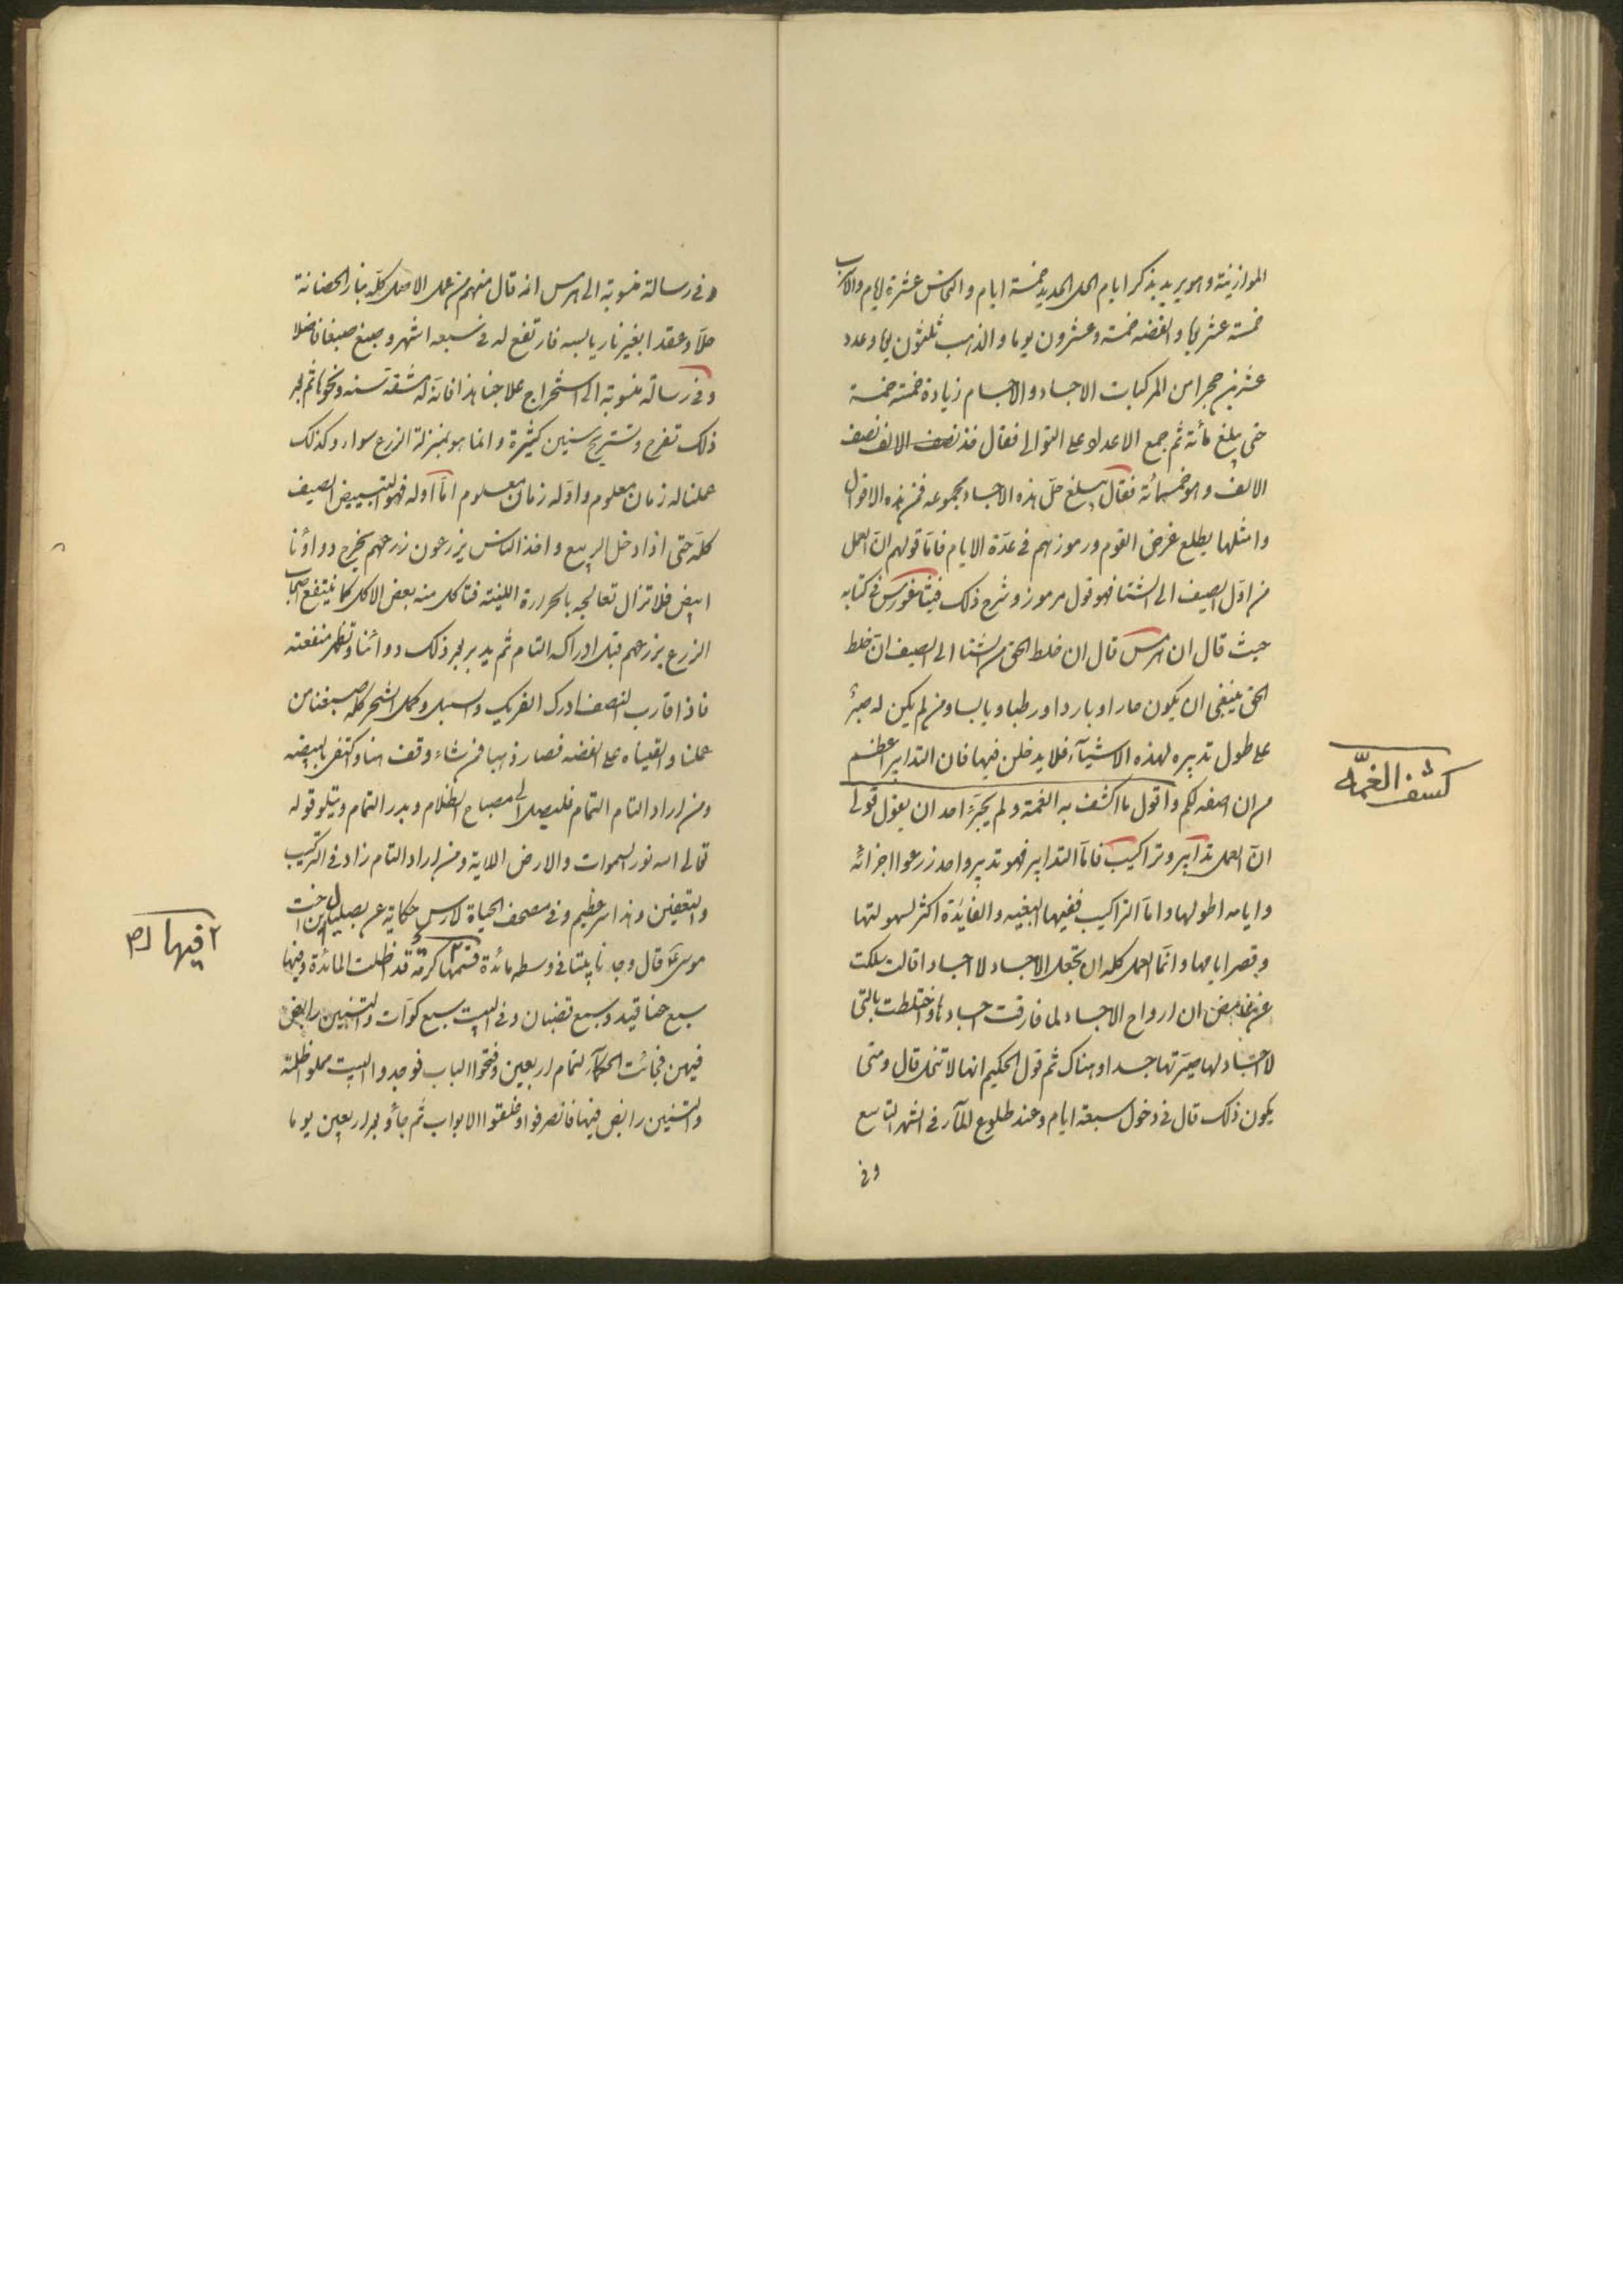 الموازنية وهو يريد بذكر ايام الحل الحديد خمسة ايام والنحاس عشرة ايام والاسرب
خمسة عشر يوما والفضه خمسة وعشرون يوما والذهب ثلثون يوما وعدد
عشرين حجرا من المركبات الاجساد والاجسام زيادة خمسة خمسة
حتى يبلغ مأئة ثم جمع الاعداد على التوالى فقال فذ نصف الالف نصف
الالف وهو خمسمائة فقال يبلغ حل هذه الاجساد مجموعه فمن هذه الاقوال
وامثلها يطلع غرض القوم ورموزهم فى عدة الايام فاما قولهم ان العمل
من اول الصيف الى الشتا فهو قول مرموز وشرح ذلك فيثاغورس فى كتابه
حيث قال ان هرمس قال ان خلط الحق من الشتا الى الصيف ان خلط
الحق ينبغى ان يكون حارا وباردا ورطبا ويابسا ومن لم يكن له صبر
على طول تدبيره لهذه الاشيآء فلا يدخلن فيها فان التدابير اعظم
من ان اصفه لكم واقول ما اكشف به الغمة ولم يجترء احد ان يقول قولى
ان العمل تدابير وتراكيب فاما التدابير فهو تدبير واحد زرعوا اجزائه
وايامه اطولها واما التراكيب ففيها البغيه والفائدة اكثر لسهولتها
وقصر ايامها وانما العمل كله ان تجعل الاجساد لا اجسادا قالت ملكت
عن غامض ان ارواح الاجساد لما فارقت اجسادها واختلطت بالتى
لا اجساد لها صيرتها جسدا وهناك ثم قول الحكيم انها لا تنحل قال ومتى
يكون ذلك قال فى دخول سبعة ايام وعند طلوع المآء فى الشهر التاسع
وفى
كشف الغمّه
وفى رسالة منسوبة الى هرمس انه قال منهم من عمل الاصل كله بنار الحضانة
حلا وعقدا بغير نار يابسه فارتفع له فى سبعه اشهر وصبغ صبغا فاضلا
وفى رسالة منسوبة الى استخراج علاجنا هذا فانه له مشقة سنه ونحوها ثم بعد
ذلك تفرح وتستريح سنين كثيرة وانما هو بمنزلة الزرع سواء وكذلك
عملنا له زمان معلوم واوله زمان معلوم اما اوله فهو التبييض الصيف
كله حتى اذا دخل الربيع واخذ الناس يزرعون زرعهم يخرج دواؤنا
ابيض فلا تزال تعالجه بالحرارة اللينه فتاكل منه بعض الاكل كما ينتفع اصحاب
الزرع بزرعهم قبل ادراكه التام ثم يدبر بعد ذلك دوائنا وتظهر منفعته
فاذا قارب النصف ادرك الفريك والسنبل وكمل الشجر كله صبغنا من
عملنا والقيناه على الفضه فصار ذهبا فمن شاء وقف هنا واكتفى بالبيضه
ومن اراد التام التمام فليصل الى مصباح الظلام وبدر التمام ويتلو قوله
تعالى الله نور السموات والارض الاية ومن اراد التام زاد فى التركيب
والتعفين وهذا سر عظيم وفى مصحف الحياة لارس حكاية عن بصليل ابن اخت
موسى ع قال وجدنا بيتا فى وسطه مائدة قسمها كرمة قد اظلت المائدة وفيها
سبع عناقيد وسبع قضبان وفى البيت سبع كوات والتنين رابض
فيهن فجائت الحكمآء لتمام اربعين وفتحوا الباب فوجدوا البيت مملو ظلمة
والتنين رابض فيها فانصرفوا وغلقوا الابواب ثم جاؤ بعد اربعين يوما
٢ فيها